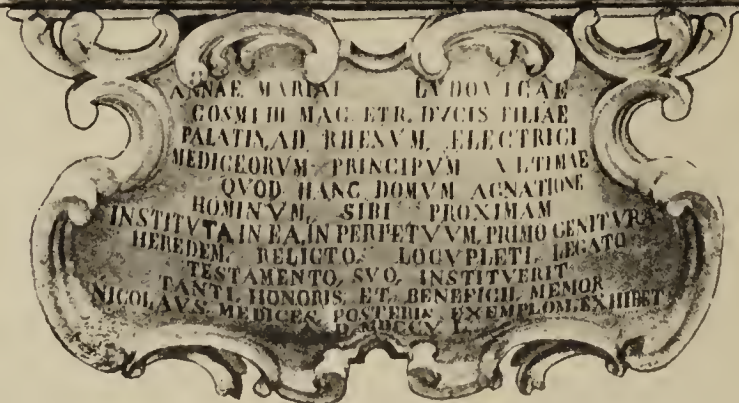 ANNAE MARIAE LVDOVICAE
COSMI III MAG. ETR. DVCIS FILIAE
PALATIN. AD RHENVM, ELECTRICI
MEDICEORVM PRINCIPVM VLTIMAE
QVOD HANC DOMVM AGNATIONE
HOMINVM, SIBI PROXIMAM
INSTITVTA, IN EA, IN PERPETVVM, PRIMO GENITVRA
HEREDEM, RELICTO, LOCVPLETI, LEGATO
TESTAMENTO, SVO, INSTITVERIT
TANTI, HONORIS, ET, BENEFICII, MEMOR
NICOLAVS MEDICES, POSTERIS EXEMPLVM, EXHIBET